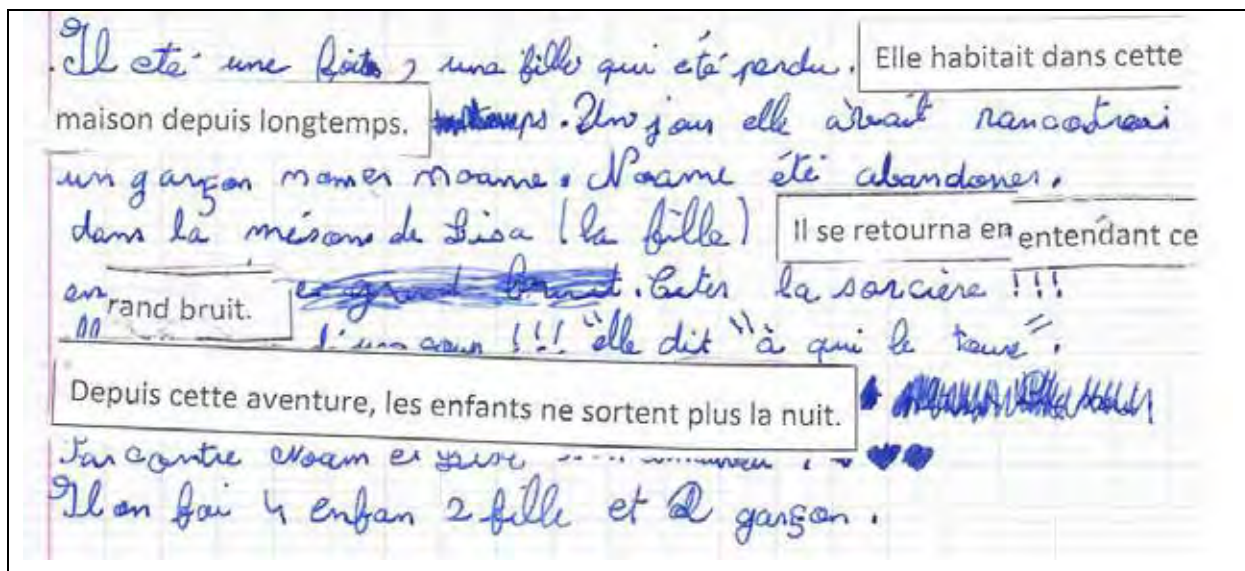 Il eté une foits, une fille qui été perdu. Elle habitait dans cette
maison depuis longtemps. Un jour elle avait rancontrai
un garçon nomer noame. Noame été abandoner.
dans la méson de Lisa (la fille) Il se retourna en entendant ce
en rand bruit. Ceter la sorcière !!!
d'un coun !!! elle dit "à qui le tour".
Depuis cette aventure, les enfants ne sortent plus la nuit.
Par contre Noam et
Il on fai 4 enfan 2 fille et 2 garçon.